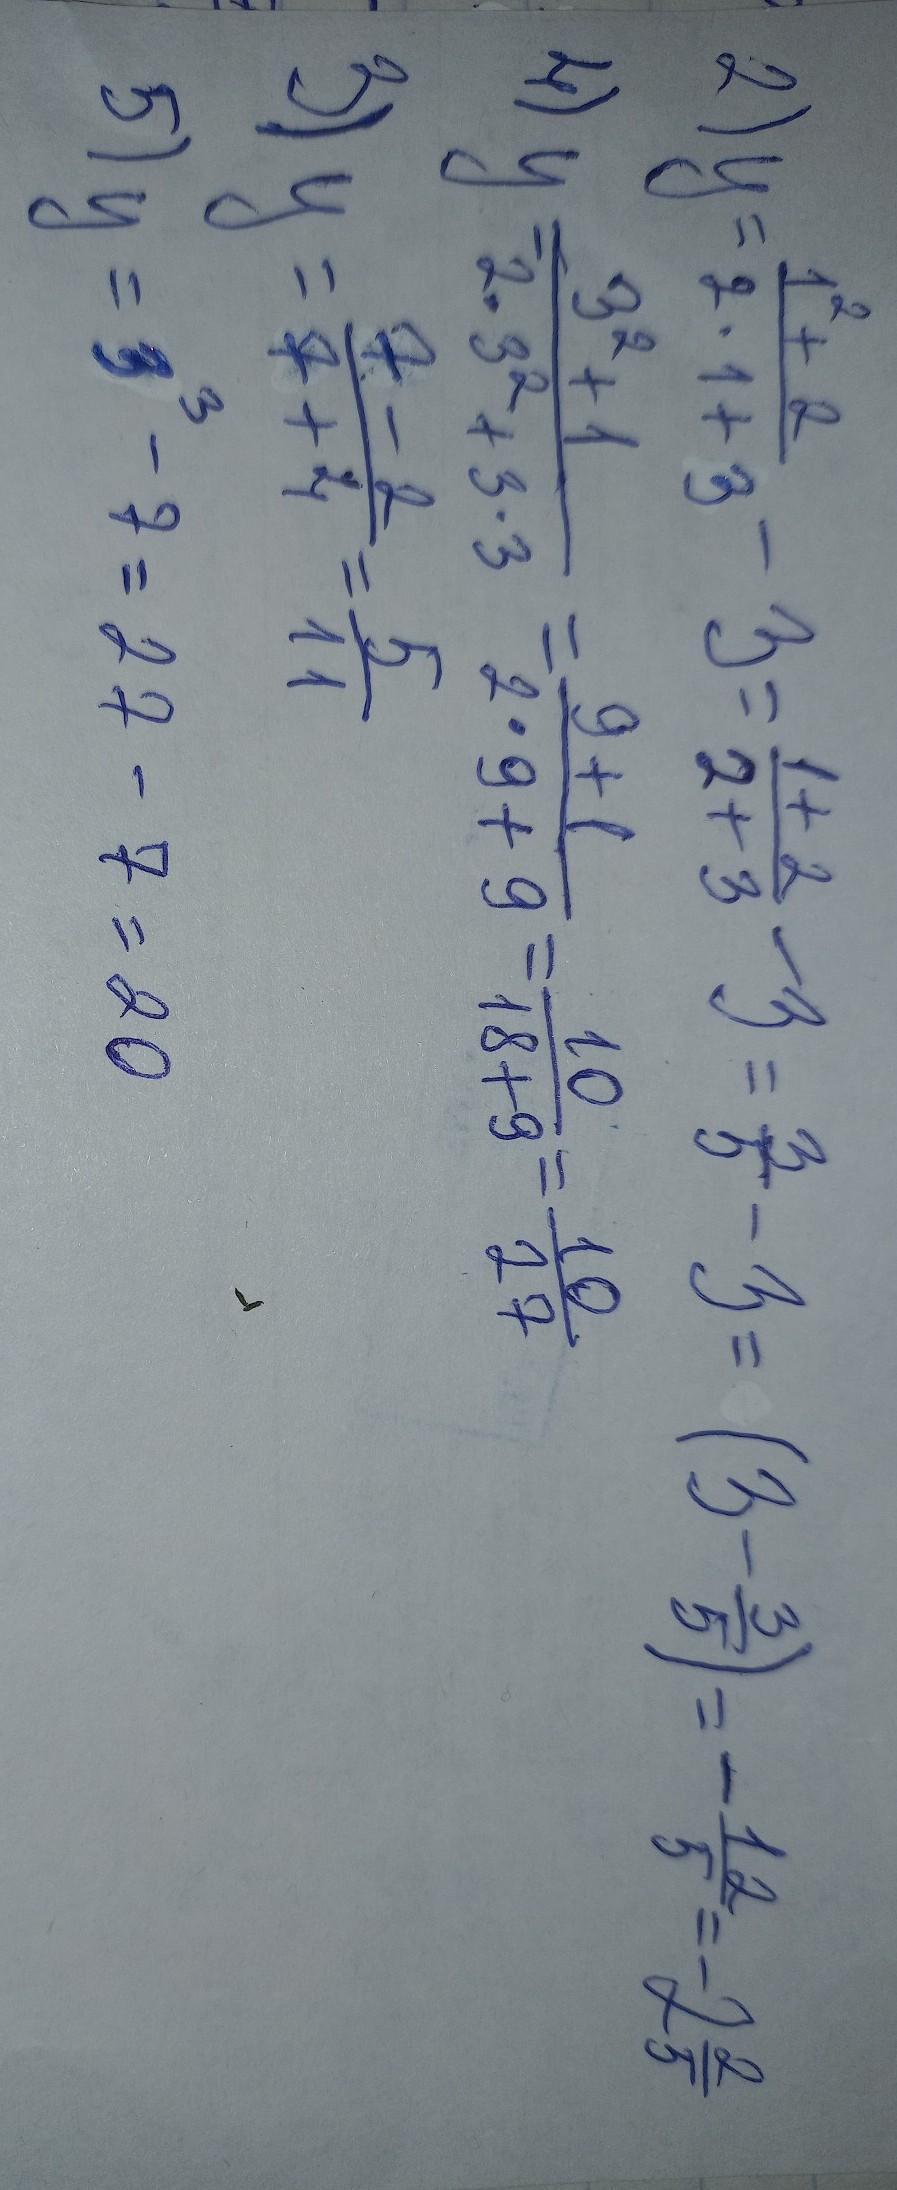 2) y = (1² + 2)/(2·1 + 3) − 3 = (1 + 2)/(2 + 3) − 3 = 3/5 − 3 = (3 − 3/5) = − 12/5 = − 2 2/5
4) y = (3² + 1)/(2·3² + 3·3) = (9 + 1)/(2·9 + 9) = 10/(18 + 9) = 10/27
3) y = (7 − 2)/(7 + 4) = 5/11
5) y = 3³ − 7 = 27 − 7 = 20